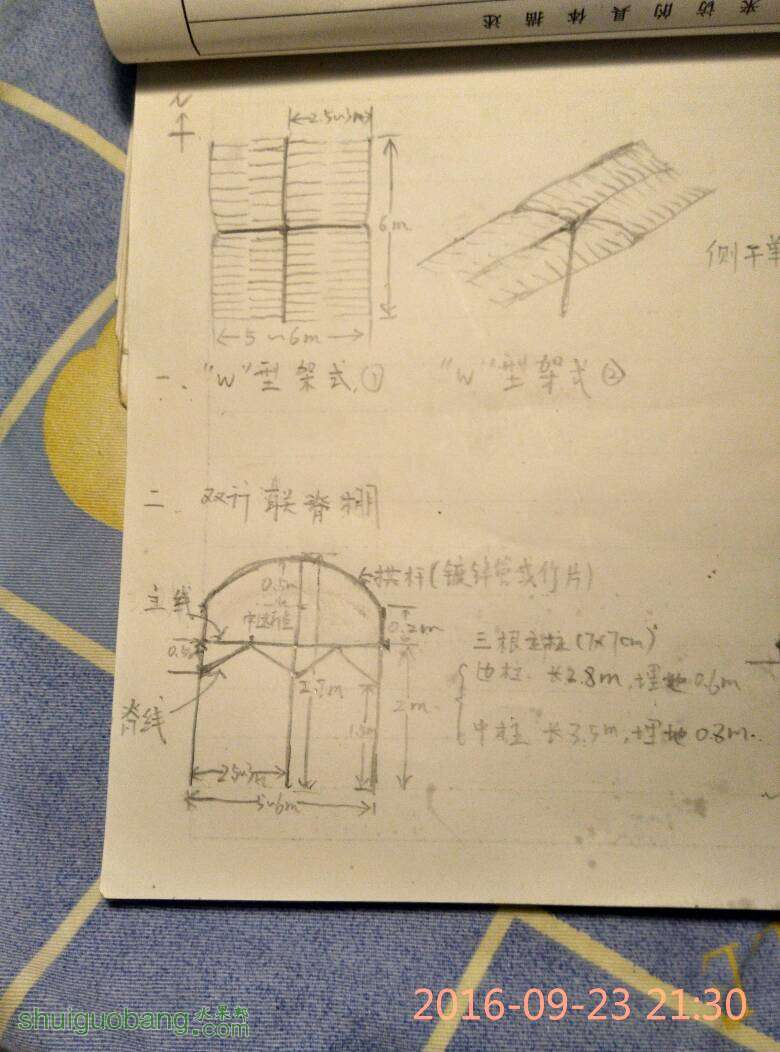 来访的具体描述
N
2.5~3m
6m
5~6m
侧干单
一、"W"型架式① "W"型架式②
二 双计联脊棚
拱杆(镀锌管或竹片)
0.5m
主线
0.2m
0.5
脊线
2.7m
2m
2.5~3m
5~6m
三根立柱(7×7cm)
边柱 长2.8m,埋地0.6m
中柱 长3.5m,埋地0.8m.
水果帮
shuiguobang.com
2016-09-23 21:30